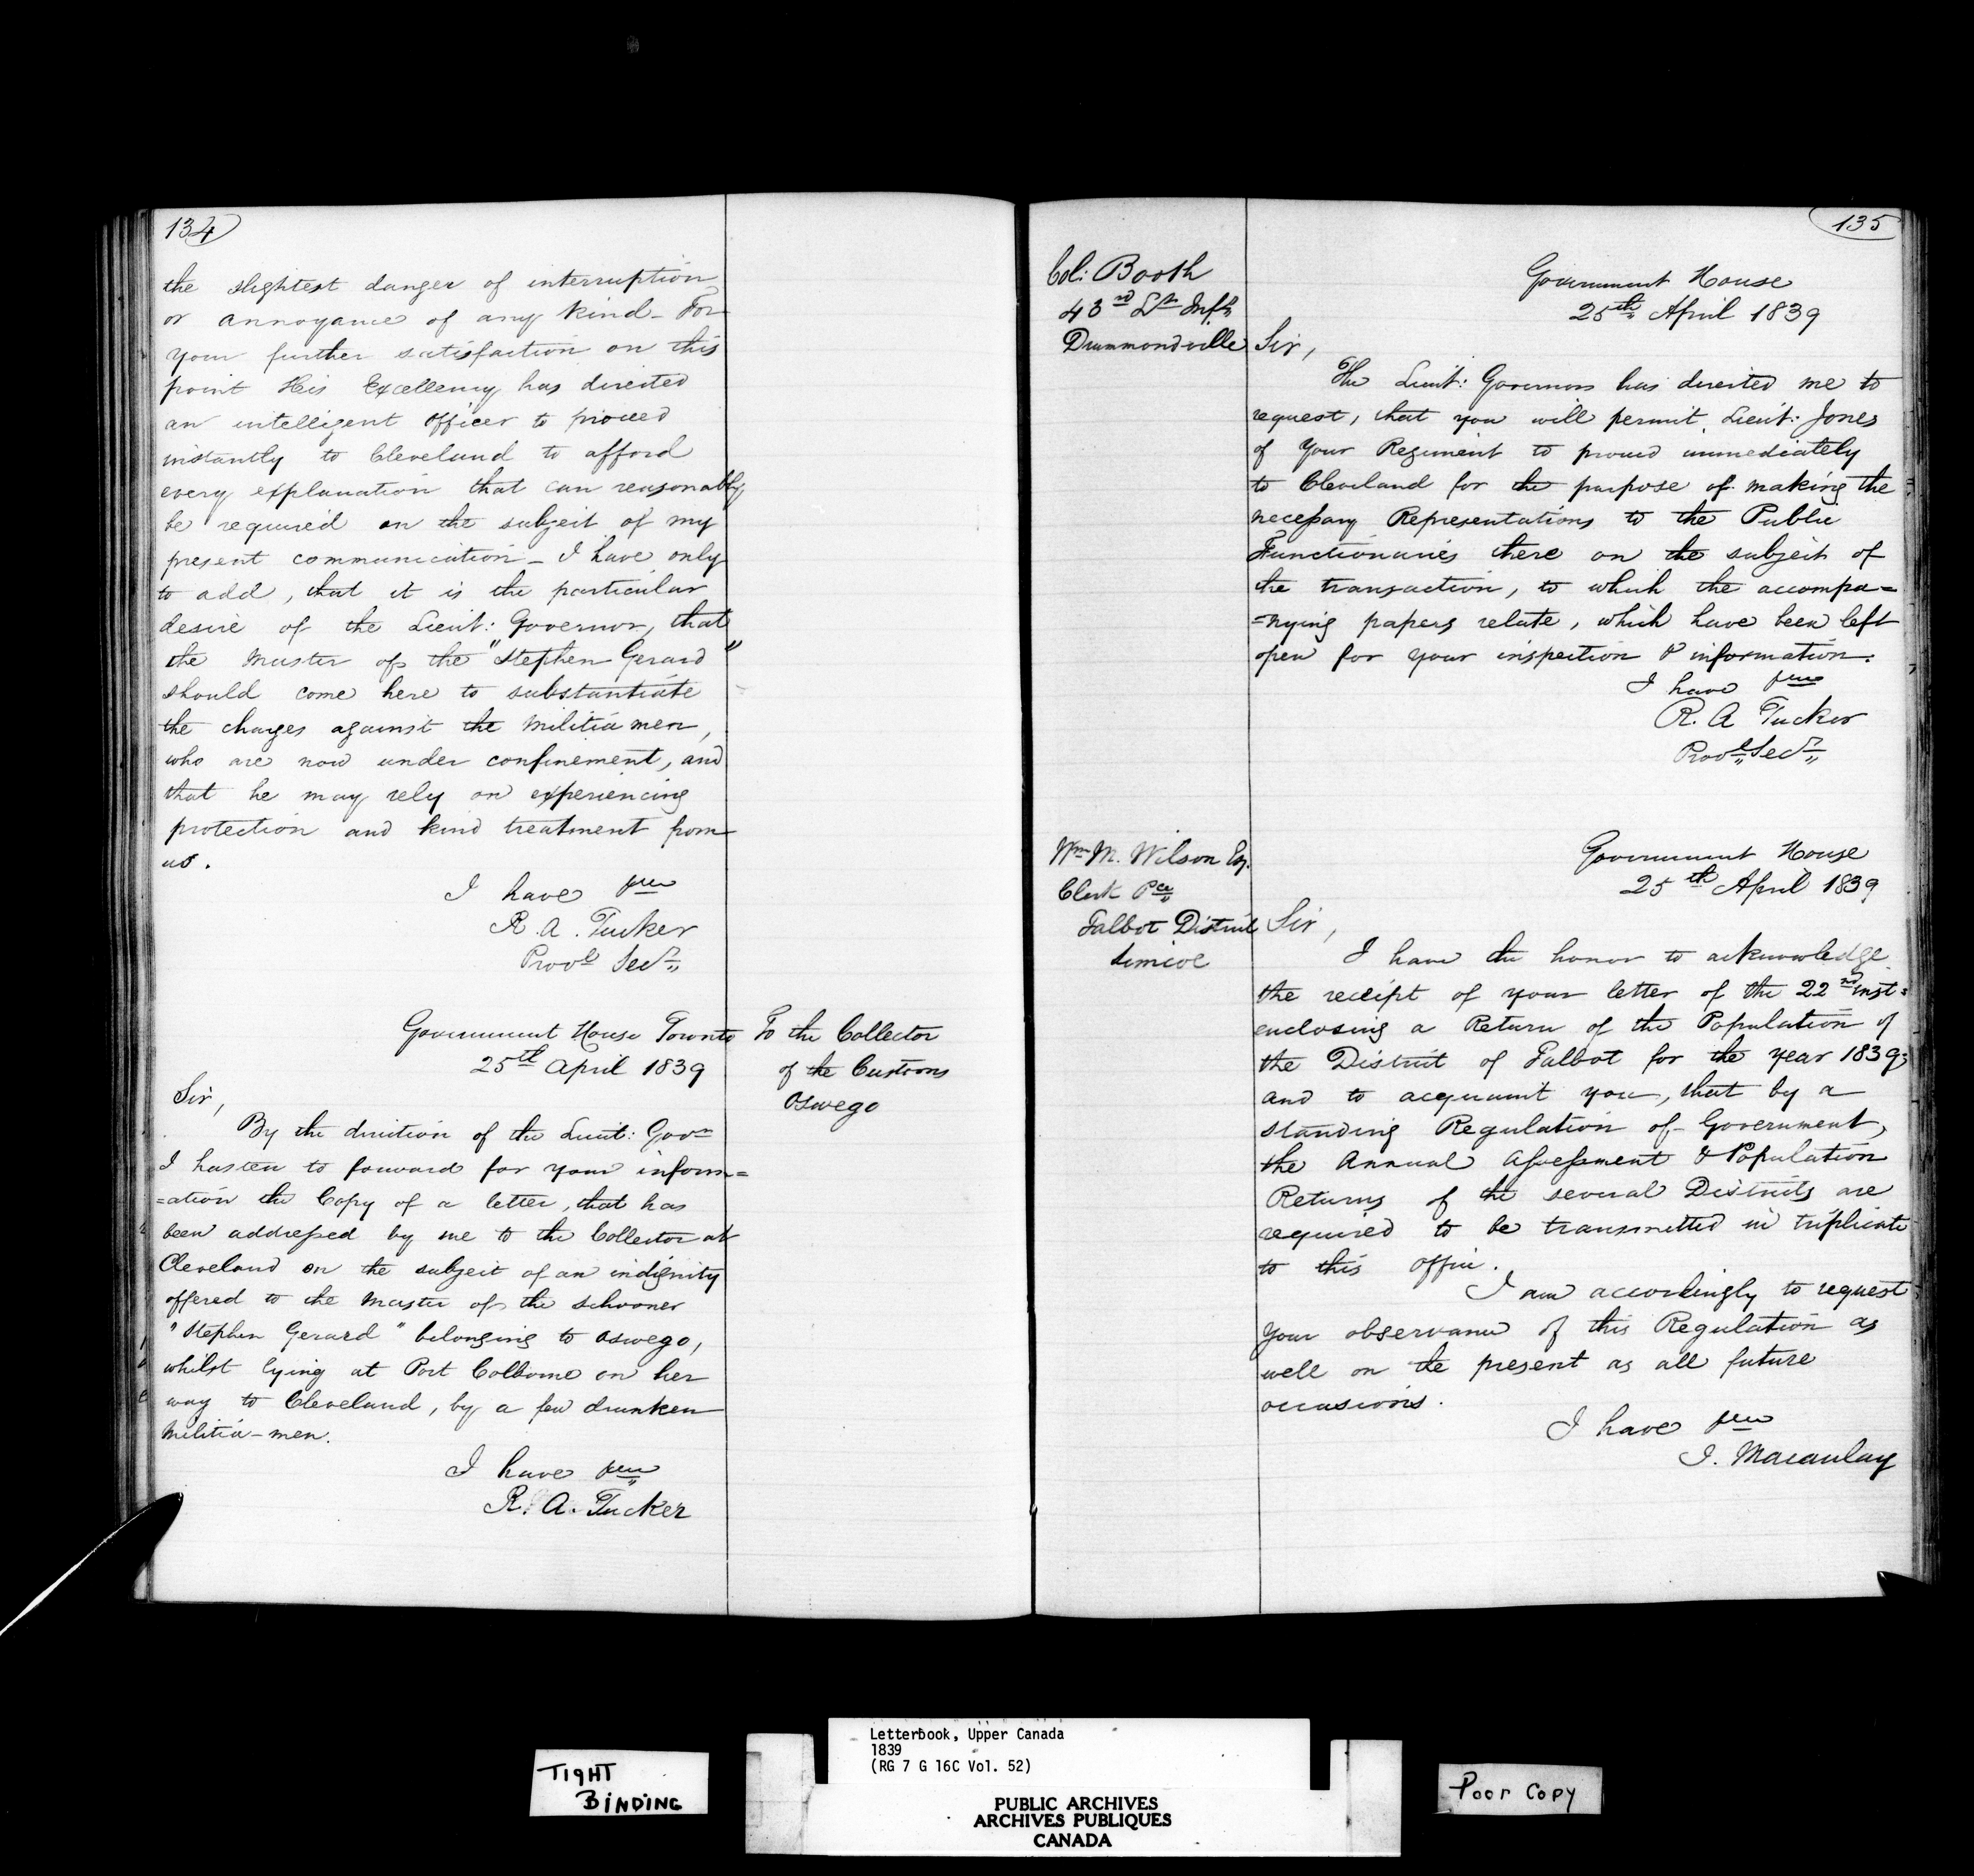 134
the slightest danger of interruption
or annoyance of any kind - For
your further satisfaction on this
point His Excellency has directed
an intelligent Officer to proceed
instantly to Cleveland to afford
every explanation that can reasonably
be required on the subject of my
present communication - I have only
to add, that it is the particular
desire of the Lieut: Governor, that
the Master of the "Stephen Gerard"
should come here to substantiate
the charges against the Militia men,
who are now under confinement, and
that he may rely on experiencing
protection and kind treatment from
us.
I have
R. A. Tucker
Provl Secy
Government House Toronto
25th April 1839
To the Collector
of the Customs
Oswego
Sir,
By the direction of the Lieut: Govr
I hasten to forward for your inform=
=ation the Copy of a letter, that has
been addressed by me to the Collector at
Cleveland on the subject of an indignity
offered to the Master of the Schooner
"Stephen Gerard" belonging to Oswego,
whilst lying at Port Colborne on her
way to Cleveland, by a few drunken
Militia-men.
I have
R. A. Tucker
135
Col: Booth
43rd Lt Infy
Drummondville
Government House
25th April 1839
Sir,
The Lieut: Governor has directed me to
request, that you will permit Lieut: Jones
of Your Regiment to proceed immediately
to Cleveland for the purpose of making the
necessary Representations to the Public
Functionaries there on the subject of
the transaction, to which the accompa=
=nying papers relate, which have been left
open for your inspection & information.
I have
R. A Tucker
Provl Secy
Wm M. Wilson Esq.
Clerk Pce
Talbot District
Simcoe
Government House
25th April 1839
Sir,
I have the honor to acknowledge
the receipt of your letter of the 22nd inst=
enclosing a Return of the Population of
the District of Talbot for the year 1839;
and to acquaint you, that by a
standing Regulation of Government,
the Annual Assessment & Population
Returns of the several Districts are
required to be transmitted in triplicate
to this office.
I am accordingly to request
your observance of this Regulation as
well on the present as all future
occasions.
I have
J. Macaulay
TIGHT
BINDING
Letterbook, Upper Canada
1839
(RG 7 G 16C Vol. 52)
PUBLIC ARCHIVES
ARCHIVES PUBLIQUES
CANADA
Poor Copy